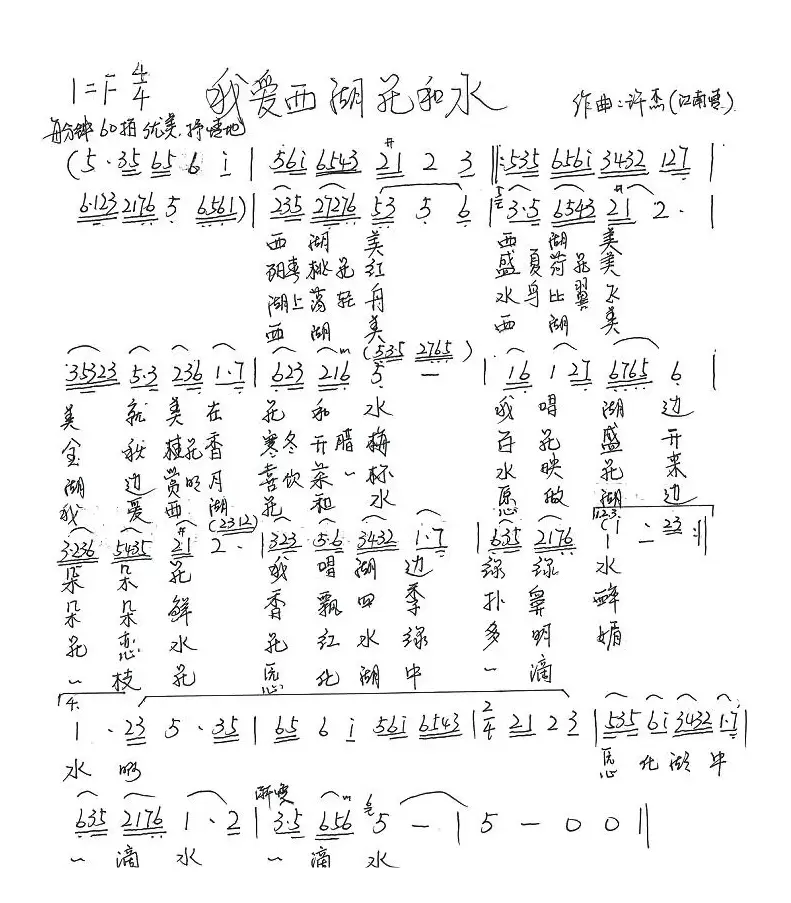 1=F 4/4 我爱西湖花和水 作曲:许杰(江南雪)
每分钟60拍 优美.抒情地
(5·35 65 6 i | 56i 6543 #21 2 3 ‖:535 656i 3432 127 |
6·123 2176 5 6561) | 235 27276 53 5 6 | 3·5 6543 #21 2· |
西湖美 西湖美
阳春桃花红 盛夏荷花美
湖上荡轻舟 水身比翼飞
西湖美 西湖美
(535 2765)
35323 5·3 236 1·7 | 623 216 5 — | 16 1 27 6765 6 |
美就美在 花和水 我唱湖边
金秋桂花香 寒冬开腊梅 百花盛开
湖边赏明月 喜饮茶一杯 水映花来
我爱西湖 花和水 愿做湖边
(2312) 1.2.3. (i
3·236 5435 #21 2· | 323 5·6 3432 1·7 | 635 2176 1 — 23 :‖
朵朵花 我唱湖边 绿绿水
朵朵鲜 香飘四季 扑鼻醉
花恋水 花红水绿 多明媚
一枝花 愿化湖中 一滴
4.
1 · 23 5 · 35 | 65 6 i 56i 6543 | 2/4 21 2 3 | 535 6i 3432 1·7 |
水啊 愿化湖中
渐慢
635 2176 1 · 2 | 3·5 656 5 — | 5 — 0 0 ‖
一滴水 一滴水